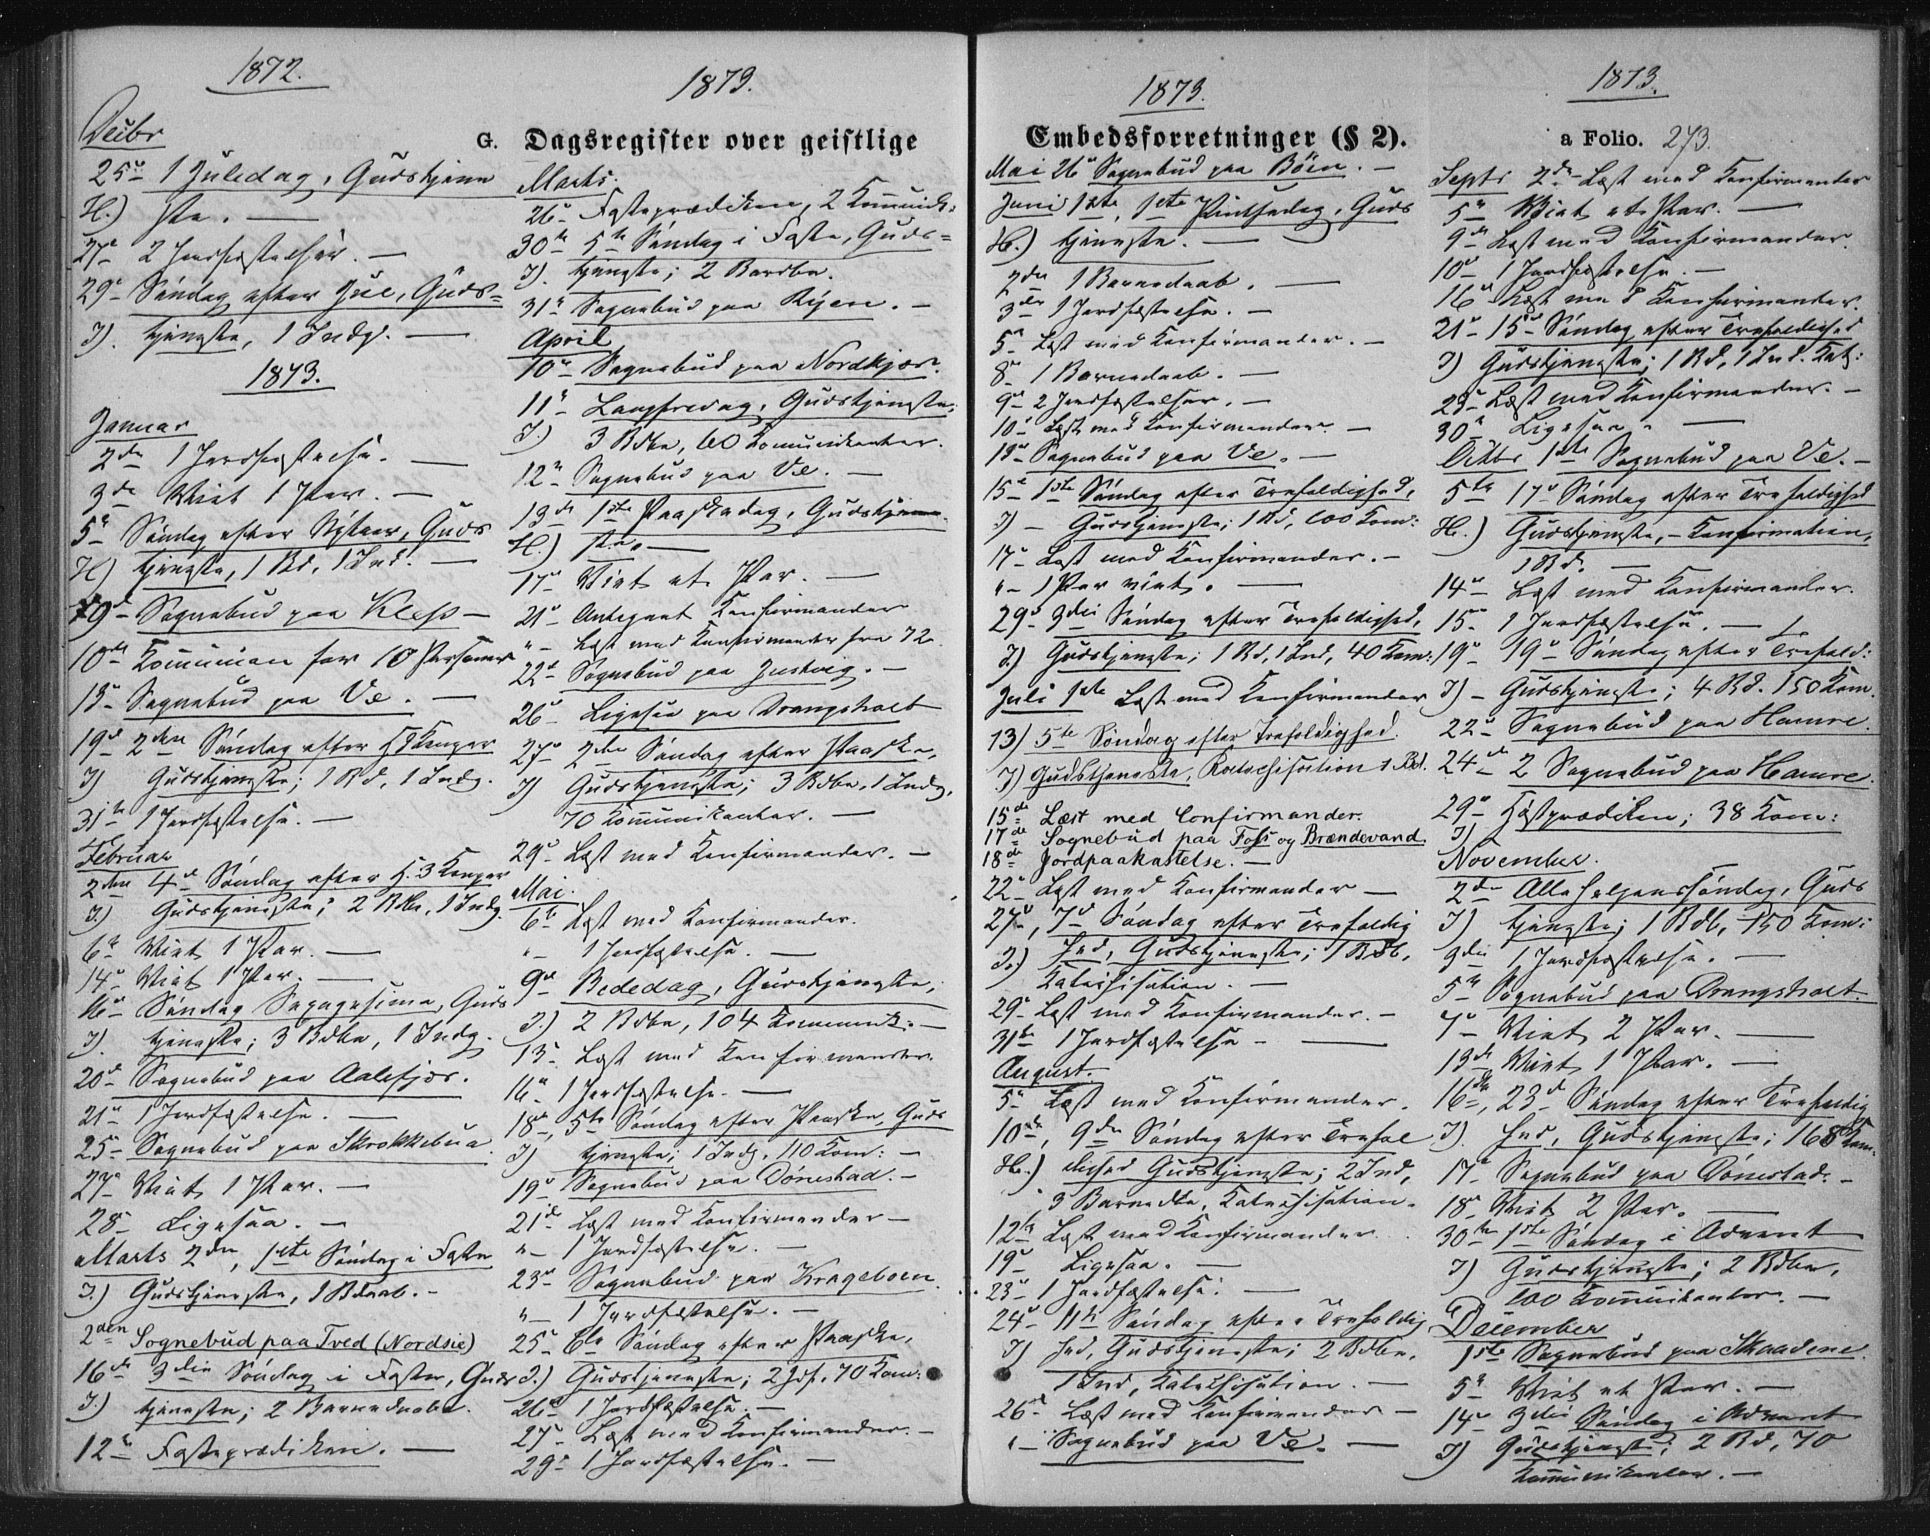 1872.
Decbr
25de 1 Juledag, Gudstjene
H.) ste. —
27e 2 Jordfæstelser. —
29e Søndag efter Jul, Guds=
T). tjeneste, 1 Indg. —
1873.
Januar
2den 1 Jordfæstelse. —
3de Viet 1 Par. —
5te Søndag efter Nytaar, Guds
H) tjeneste, 1 Bd, 1 Ind. —
9de Sognebud paa Klep —
10de Kommunion for 10 Personer
13e Sognebud paa Ve. —
19d 2den Søndag efter H 3 Konger
T) Gudstjeneste; 1 Bd, 1 Indg.
31te 1 Jordfæstelse. —
Februar
2den 4d Søndag efter H. 3 Konger
T.) Gudstjeneste; 2 Bdbe, 1 Indg.
6te Viet 1 Par. —
14e Viet 1 Par. —
16e Søndag Sexagesima, Guds
T). tjeneste; 3 Bdbe, 1 Indg.
20de Sognebud paa Aalefjær.
21e 1 Jordfæstelse. —
25e Sognebud paa Skrokkebua
27e Viet 1 Par. —
28e Ligesaa. —
Marts 2den, 1ste Søndag i Faste
T.) Gudstjeneste, 1 Bdaab. -
2den Sognebud paa Tved (Nordsie)
16de 3die Søndag i Faste, Guds
T.) tjeneste; 2 Barnedaabe.
12te Fasteprædiken. —
1873.
G. Dagsregister over geistlige
Marts.
26e Fasteprædiken, 2 Kommunik:
30te 5te Søndag i Faste, Guds=
T). tjeneste; 2 Bardbe.
31te Sognebud paa Ryen. —
April
10de Sognebud paa Nordkjær.
11te Langfredag, Gudstjeneste;
T.) 3 Bdbe, 60 Komunikanter.
12te Sognebud paa Ve. —
13de 1ste Paaskedag, Gudstjene
H.) ste. —
17de Viet et Par. —
21e Antegnet Konfirmander
" — Læst med Konfirmander fra 72
22de Sognebud paa Justvig. —
26e Ligesaa paa Drangsholt
27e 2den Søndag efter Paaske,
T) Gudstjeneste; 3 Bdbe, 1 Indg,
70 Kommunikanter. —
29e Læst med Konfirmander. —
Mai.
6te Læst med Konfirmander.
" — 1 Jordfæstelse. —
9de Bededag, Gudstjeneste;
T.) 2 Bdbe, 104 Kommunik: —
13e Læst med Konfirmander
16e 1 Jordfæstelse. —
18de, 5te Søndag efter Paaske, Guds
T) tjeneste; 1 Indg, 110 Kom: —
19e Sognebud paa Dønestad. —
21de Læst med Konfirmander —
" — 1 Jordfæstelse. —
23e Sognebud paa Krageboen.
" — 1 Jordfæstelse. —
25e 6te Søndag efter Paaske,
T.) Gudstjeneste; 2 Jdf. 70 Kom:
26e 1 Jordfæstelse. —
27e Læst med Konfirmander. —
29e 1 Jordfæstelse. —
1873.
Embedsforretninger (§ 2).
Mai 26e Sognebud paa Böen. —
Juni 1ste, 1ste Pintsedag, Guds
H.) tjeneste. —
2den 1 Barnedaab. —
3die 1 Jordfæstelse. —
5te Læst med Konfirmander. —
8e 1 Barnedaab. —
9e 2 Jordfæstelser. —
10e Læst med Konfirmander. —
13e Sognebud paa Ve. —
15e 1ste Søndag efter Trefoldighed,
T) — Gudstjeneste; 1 Bd, 100 Kom:
17e Læst med Konfirmander. —
" — 1 Par viet. —
29e 3die Søndag efter Trefoldighed,
T.) Gudstjeneste; 1 Bd, 1 Ind, 40 Kom:
Juli 1ste Læst med Konfirmander
13) 5te Søndag efter Trefoldighed.
T) Gudstjeneste, Katechisation 1 Bd.
15de Læst med Confirmander.
17de Sognebud paa Foss og Brændevand.
18de Jordpaakastelse. —
22e Læst med Konfirmander —
27e, 7e Søndag efter Trefoldig
T.) hed, Gudstjeneste; 1 Bdb,
Katechisation. —
29e Læst med Konfirmander. —
31te 1 Jordfæstelse — —
August.
5te Læst med Konfirmander.
10de, 9de Søndag efter Trefol
H.) dighed Gudstjeneste; 2 Ind,
3 Barnedbe, Katechisation.
12te Læst med Konfirmander.
19e Ligesaa. —
23e 1 Jordfæstelse. —
24e 11te Søndag efter Trefoldig
T) hed, Gudstjeneste; 2 Bdbe,
1 Ind, Katechisation. —
26e Læst med Konfirmander —
" — Sognebud paa Ve. —
1873.
a Folio. 273.
Septr 2de Læst med Konfirmander
5te Viet et Par. —
9de Læst med Konfirmander.
10e 1 Jordfæstelse. —
16e Læst med Konfirmander.
21e 15de Søndag efter Trefoldighed
T) Gudstjeneste; 1 Bd, 1 Ind. Kat:
23e Læst med Konfirmander. —
30e Ligesaa. —
Oktbr 1ste Sognebud paa Ve. —
5te 17e Søndag efter Trefoldighed
H.) Gudstjeneste, — Konfirmation,
1 Bd. —
14e Læst med Konfirmander.
15e 1 Jordfæstelse. —
19e 19e Søndag efter Trefold:
T) — Gudstjeneste; 4 Bd. 150 Kom.
22e Sognebud paa Hamre.
24de 2 Sognebud paa Hamre.
29e Høstprædiken; 38 Kom:
T)
November.
2den Alle helgenssøndag, Guds
T) tjeneste; 1 Bdb, 150 Kom:
3die 1 Jordfæstelse. —
5te Sognebud paa Drangsholt.
7e Viet 2 Par. —
13de Viet 1 Par. —
16de, 23d Søndag efter Trefoldig
T). hed, Gudstjeneste; 168 Kom.
17e Sognebud paa Dønestad. —
18e Viet 2 Par. —
30te 1ste Søndag i Advent
T) Gudstjeneste; 2 Bdbe,
100 Kommunikanter. —
December
1ste Sognebud paa Skaadene.
5te Viet et Par. —
14e 3die Søndag i Advent
T) Gudstjeneste; 2 Bd, 70
Kommunikanter. —